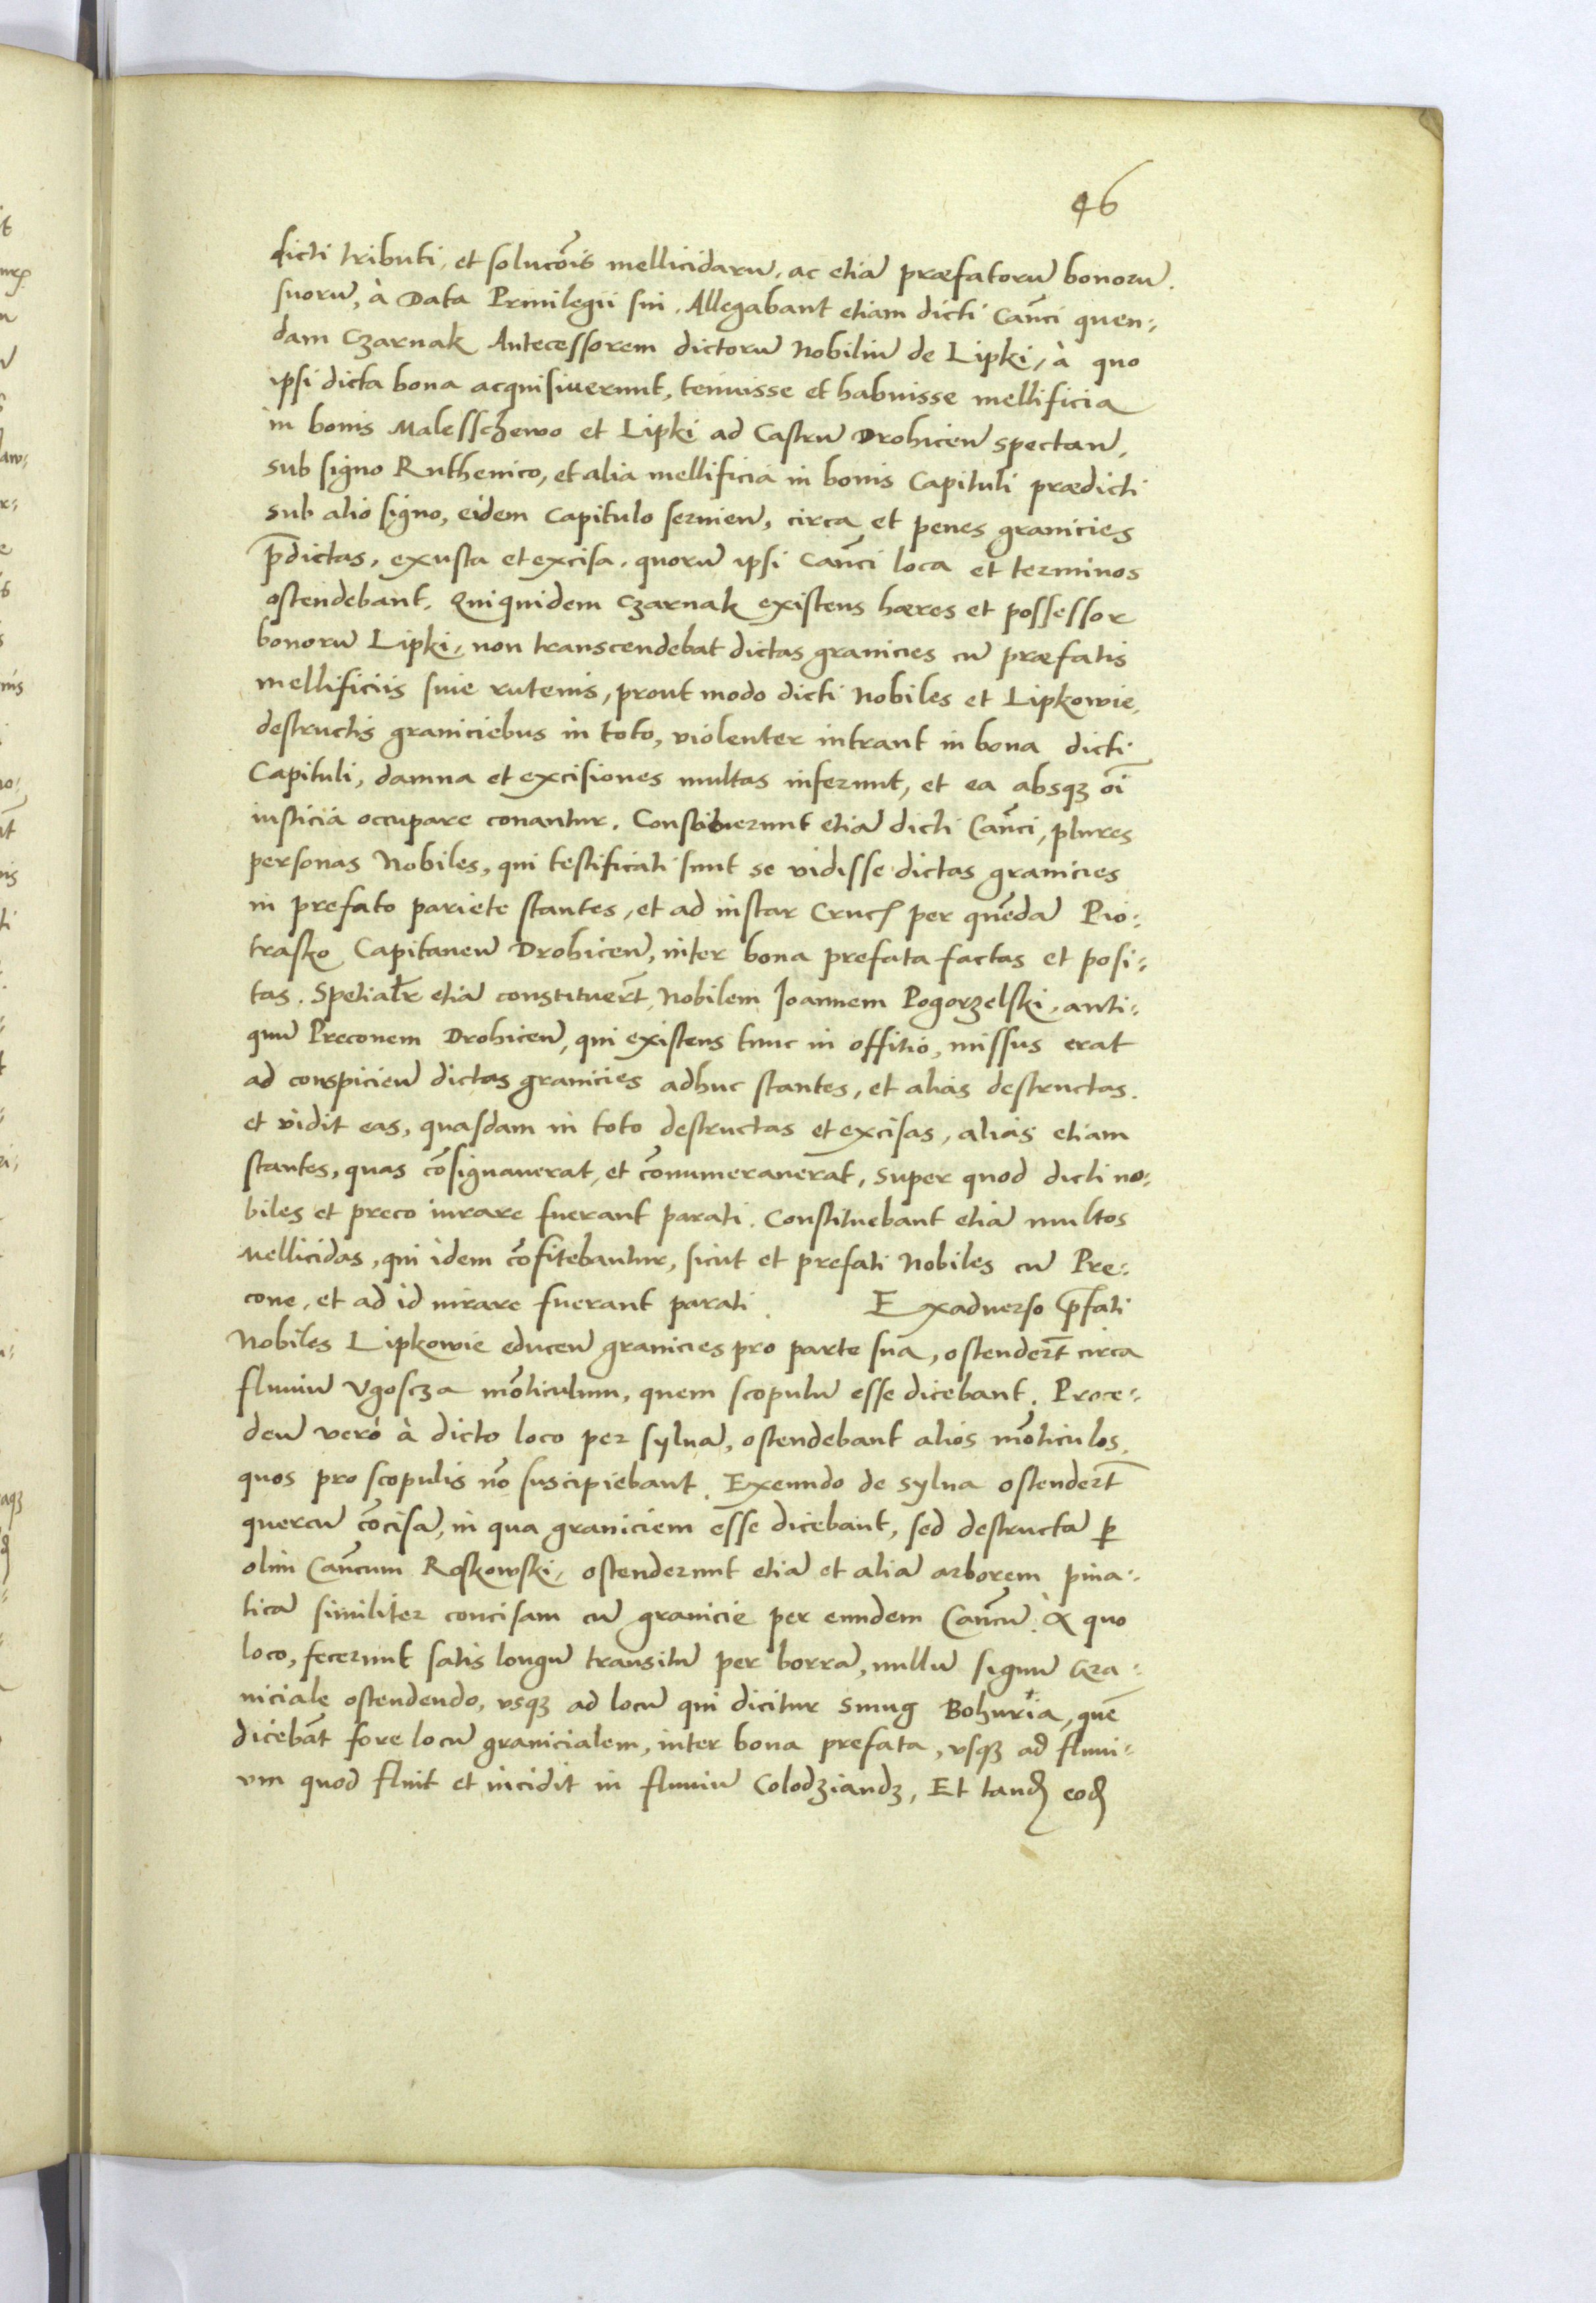 46
dicti tributi, et solucõis mellicidarũ, ac etiã præfatorũ bonorũ
suorũ, à Data Priuilegii sui. Allegabant etiam dicti Canci quen:
dam Czarnak Antecessorem dictorũ Nobiliũ de Lipki, à quo
ipsi dicta bona acquisiuerunt, tenuisse et habuisse mellificia
in bonis Malesschewo et Lipki ad Castrũ Drohiceñ spectañ,
sub signo Ruthenico, et alia mellificia in bonis Capituli prædicti
sub alio signo, eidem Capitulo seruieñ, circa et penes granicies
p̃dictas, exusta et excisa, quorũ ipsi Canci loca et terminos
ostendebant. Quiquidem Czarnak existens hæres et possessor
bonorũ Lipki, non transcendebat dictas granicies cũ præfatis
mellificiis suie rutenis, prout modo dicti Nobiles et Lipkowie,
destructis graniciebus in toto, violenter intrant in bona dicti
Capituli, damna et excisiones multas inferunt, et ea absqꝫ oĩ
iusticia occupare conantur. Constituerunt etiã dicti Canci, plures
personas Nobiles, qui testificati sunt se vidisse dictas granicies
in prefato pariete stantes, et ad instar Crucꝭ per quẽdã Pio:
trasko Capitaneũ Drohiceñ, inter bona prefata factas et posi:
tas. Spetialr̃ etiã constituer̃t Nobilem Joannem Pogorzelski, anti:
quũ Preconem Drohiceñ, qui existens tunc in offitio, missus erat
ad conspicieñ dictas granicies adhuc stantes, et alias destructas.
et vidit eas, quasdam in toto destructas et excisas, alias etiam
stantes, quas cõsignauerat, et cõnumerauerat, super quod dicti no:
biles et preco iurare fuerant parati. Constituebant etiã multos
Mellicidas, qui idem cõfitebantur, sicut et prefati Nobiles cũ Pre:
cone, et ad id iurare fuerant parati. Exaduerso p̃fati
Nobiles Lipkowie educeñ granicies pro parte sua, ostender̃t circa
fluuiũ Vgoscza mõticulum, quem scopulũ esse dicebant. Proce:
deñ verò à dicto loco per syluã, ostendebant alios mõticulos,
quos pro scopulis nõ suscipiebant. Exeundo de sylua ostender̃t
quercũ cõcisã, in qua graniciem esse dicebant, sed destructã ꝑ
olim Cancum Roskowski, ostenderunt etiã et aliã arborem pina:
ticã similiter concisam cũ granicie per eundem Cancũ. A quo
loco, fecerunt satis longũ transitũ per borrã, nullũ signũ Gra:
niciale ostendendo, vsqꝫ ad locũ qui dicitur Smug Bohuria, quẽ
dicebãt fore locũ granicialem, inter bona prefata, vsqꝫ ad fluui:
um quod fluit et incidit in fluuiũ Colodziandz, Et tandꝭ eodꝭ